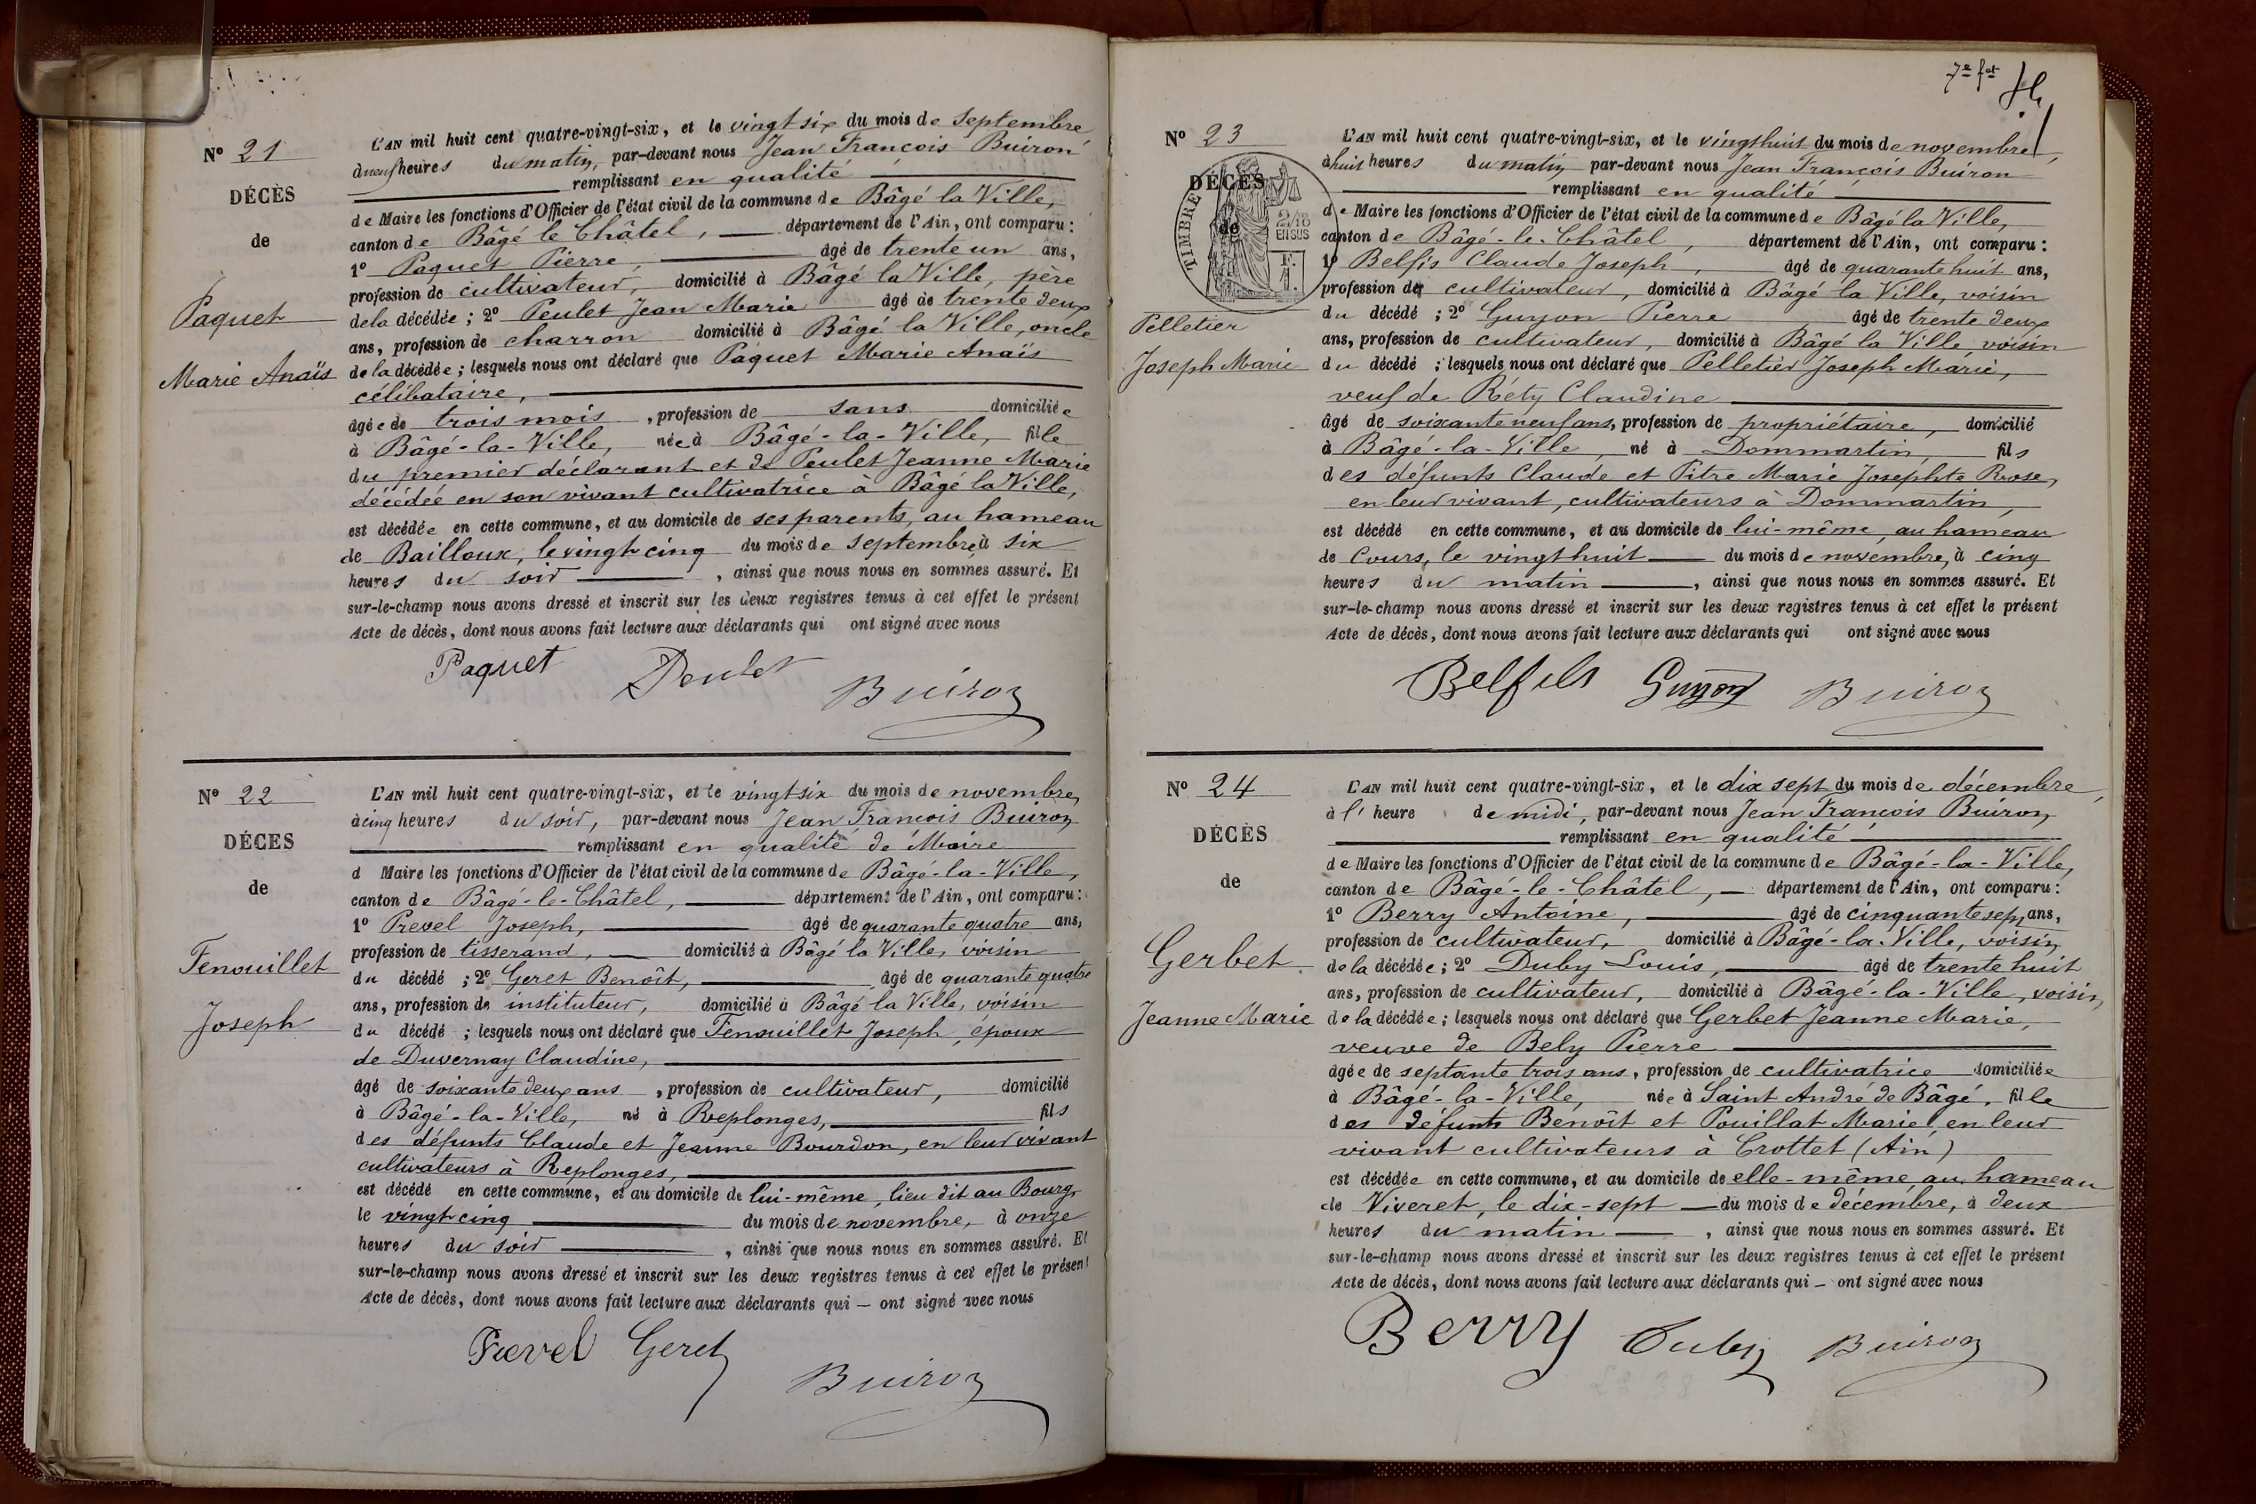 N° 21
DÉCÈS
de
Paquet
Marie Anaïs
L'AN mil huit cent quatre-vingt-six, et le vingt six du mois de Septembre
à neuf heures du matin, par-devant nous Jean François Buiron
remplissant en qualité
de Maire les fonctions d'Officier de l'état civil de la commune de Bâgé la Ville,
canton de Bâgé le Châtel, département de l'Ain, ont comparu :
1° Paquet Pierre, âgé de trente un ans,
profession de cultivateur, domicilié à Bâgé la Ville, père
de la décédée ; 2° Peulet Jean Marie âgé de trente deux
ans, profession de charron domicilié à Bâgé la Ville, oncle
de la décédée ; lesquels nous ont déclaré que Paquet Marie Anaïs
célibataire,
âgée de trois mois, profession de sans domiciliée
à Bâgé-la-Ville, née à Bâgé-la-Ville, fille
du premier déclarant et de Peulet Jeanne Marie
décédée en son vivant cultivatrice à Bâgé la Ville,
est décédée en cette commune, et au domicile de ses parents, au hameau
de Bailloux, le vingt cinq du mois de septembre, à six
heures du soir, ainsi que nous nous en sommes assuré. Et
sur-le-champ nous avons dressé et inscrit sur les deux registres tenus à cet effet le présent
Acte de décès, dont nous avons fait lecture aux déclarants qui ont signé avec nous
Paquet Peulet Buiron
N° 22
DÉCES
de
Fenouillet
Joseph
L'AN mil huit cent quatre-vingt-six, et le vingt six du mois de novembre,
à cinq heures du soir, par-devant nous Jean François Buiron
remplissant en qualité de Maire
d Maire les fonctions d'Officier de l'état civil de la commune de Bâgé-la-Ville,
canton de Bâgé-le-Châtel, département de l'Ain, ont comparu :
1° Prevel Joseph, âgé de quarante quatre ans,
profession de tisserand, domicilié à Bâgé la Ville, voisin
du décédé ; 2° Geret Benoît, âgé de quarante quatre
ans, profession de instituteur, domicilié à Bâgé la Ville, voisin
du décédé ; lesquels nous ont déclaré que Fenouillet Joseph, époux
de Duvernay Claudine,
âgé de soixante deux ans, profession de cultivateur, domicilié
à Bâgé-la-Ville, né à Replonges, fils
des défunts Claude et Jeanne Bourdon, en leur vivant
cultivateurs à Replonges,
est décédé en cette commune, et au domicile de lui-même, lieu dit au Bourg,
le vingt cinq du mois de novembre, à onze
heures du soir, ainsi que nous nous en sommes assuré. Et
sur-le-champ nous avons dressé et inscrit sur les deux registres tenus à cet effet le présent
Acte de décès, dont nous avons fait lecture aux déclarants qui — ont signé avec nous
Prevel Geret Buiron
7e fet
N° 23
DÉCÈS
de
TIMBRE
2/10
EN SUS
F.
1.
Pelletier
Joseph Marie
L'AN mil huit cent quatre-vingt-six, et le vingt huit du mois de novembre,
à huit heures du matin par-devant nous Jean François Buiron
remplissant en qualité
de Maire les fonctions d'Officier de l'état civil de la commune de Bâgé la Ville,
canton de Bâgé-le-Châtel, département de l'Ain, ont comparu :
1° Belfis Claude Joseph, âgé de quarante huit ans,
profession de cultivateur, domicilié à Bâgé la Ville, voisin
du décédé ; 2° Guyon Pierre âgé de trente deux
ans, profession de cultivateur, domicilié à Bâgé la Ville, voisin
du décédé ; lesquels nous ont déclaré que Pelletier Joseph Marie,
veuf de Réty Claudine
âgé de soixante neuf ans, profession de propriétaire, domicilié
à Bâgé-la-Ville, né à Dommartin, fils
des défunts Claude et Pitre Marie Josephte Rose,
en leur vivant, cultivateurs à Dommartin,
est décédé en cette commune, et au domicile de lui-même, au hameau
de Cours, le vingt huit du mois de novembre, à cinq
heures du matin, ainsi que nous nous en sommes assuré. Et
sur-le-champ nous avons dressé et inscrit sur les deux registres tenus à cet effet le présent
Acte de décès, dont nous avons fait lecture aux déclarants qui ont signé avec nous
Belfils Guyon Buiron
N° 24
DÉCÈS
de
Gerbet
Jeanne Marie
L'AN mil huit cent quatre-vingt-six, et le dix sept du mois de décembre,
à l'heure de midi, par-devant nous Jean François Buiron,
remplissant en qualité
de Maire les fonctions d'Officier de l'état civil de la commune de Bâgé-la-Ville,
canton de Bâgé-le-Châtel, département de l'Ain, ont comparu :
1° Berry Antoine, âgé de cinquante sept ans,
profession de cultivateur, domicilié à Bâgé-la-Ville, voisin
de la décédée ; 2° Duby Louis, âgé de trente huit
ans, profession de cultivateur, domicilié à Bâgé-la-Ville, voisin,
de la décédée ; lesquels nous ont déclaré que Gerbet Jeanne Marie,
veuve de Bely Pierre
âgée de septante trois ans, profession de cultivatrice domiciliée
à Bâgé-la-Ville, née à Saint André de Bâgé, fille
des défunts Benoît et Pouillat Marie, en leur
vivant cultivateurs à Crottet (Ain)
est décédée en cette commune, et au domicile de elle-même, au hameau
de Viveret, le dix-sept du mois de décembre, à deux
heures du matin, ainsi que nous nous en sommes assuré. Et
sur-le-champ nous avons dressé et inscrit sur les deux registres tenus à cet effet le présent
Acte de décès, dont nous avons fait lecture aux déclarants qui — ont signé avec nous
Berry Duby Buiron